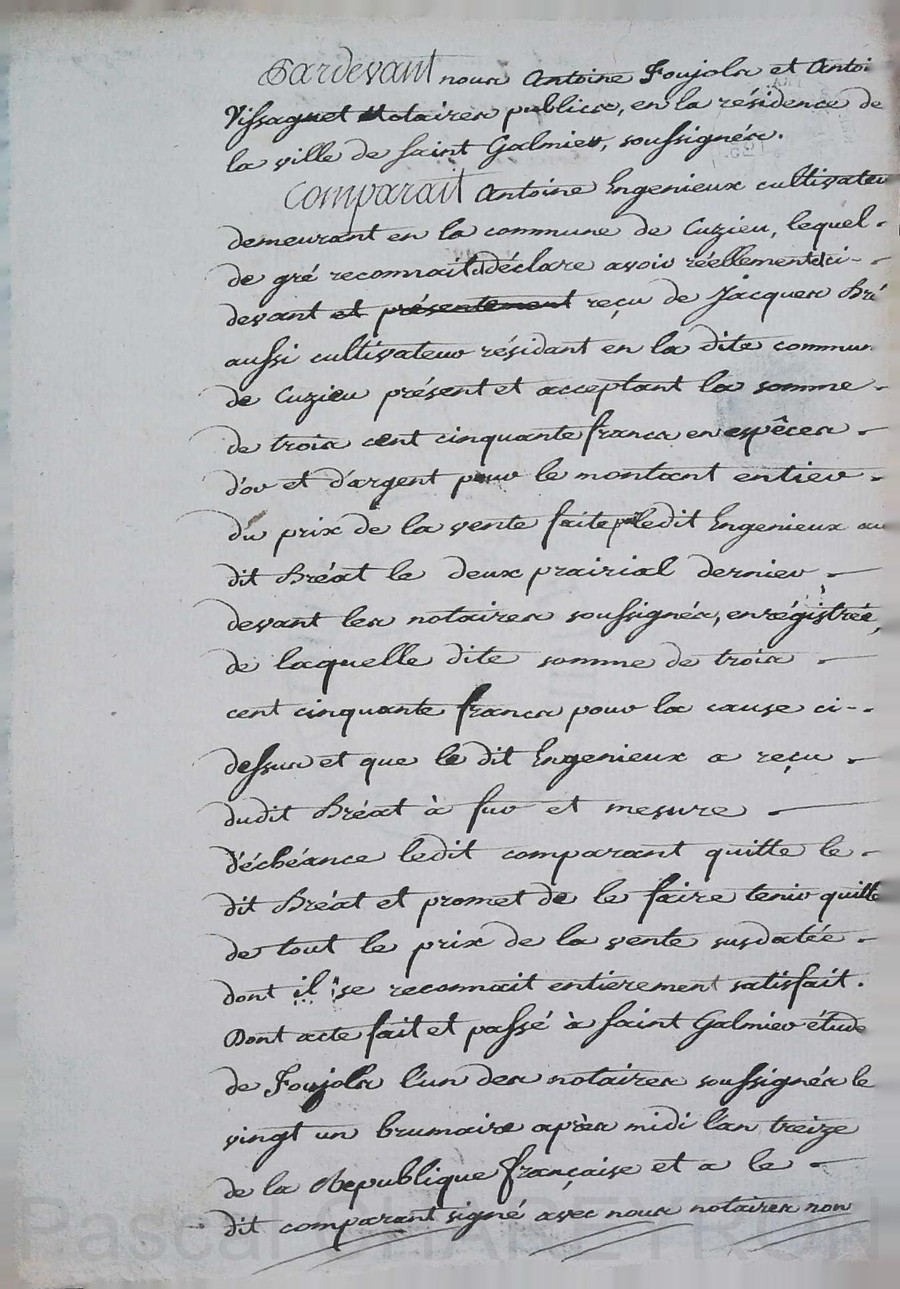 Pardevant nous Antoine Foujols et Antoi
Vissaguet Notaires publics, en la résidence de
la ville de Saint Galmier, soussignés.
Comparait Antoine Engenieux cultivateu
demeurant en la commune de Cuzieu, lequel
de gré reconnait déclare avoir réellement ci-
devant et présentement reçu de Jacques Bré
aussi cultivateur résidant en la dite commun
de Cuzieu présent et acceptant la somme
de trois cent cinquante francs en espêces
d'or et d'argent pour le montant entier
du prix de la vente faite par ledit Engenieux au
dit Bréat le deux prairial dernier
devant les notaires soussignés, enrégistrée,
de laquelle dite somme de trois
cent cinquante francs pour la cause ci-
dessus et que le dit Engenieux a reçu
dudit Bréat à fur et mesure
d'échéance ledit comparant quitte le
dit Bréat et promet de le faire tenir quitte
de tout le prix de la vente susdatée
dont il se reconnait entierement satisfait.
Dont acte fait et passé à Saint Galmier étude
de Foujols l'un des notaires soussignés le
vingt un brumaire après midi lan treize
de la République française et a le
dit comparant signé avec nous notaires non
Pascal CHAREYRON